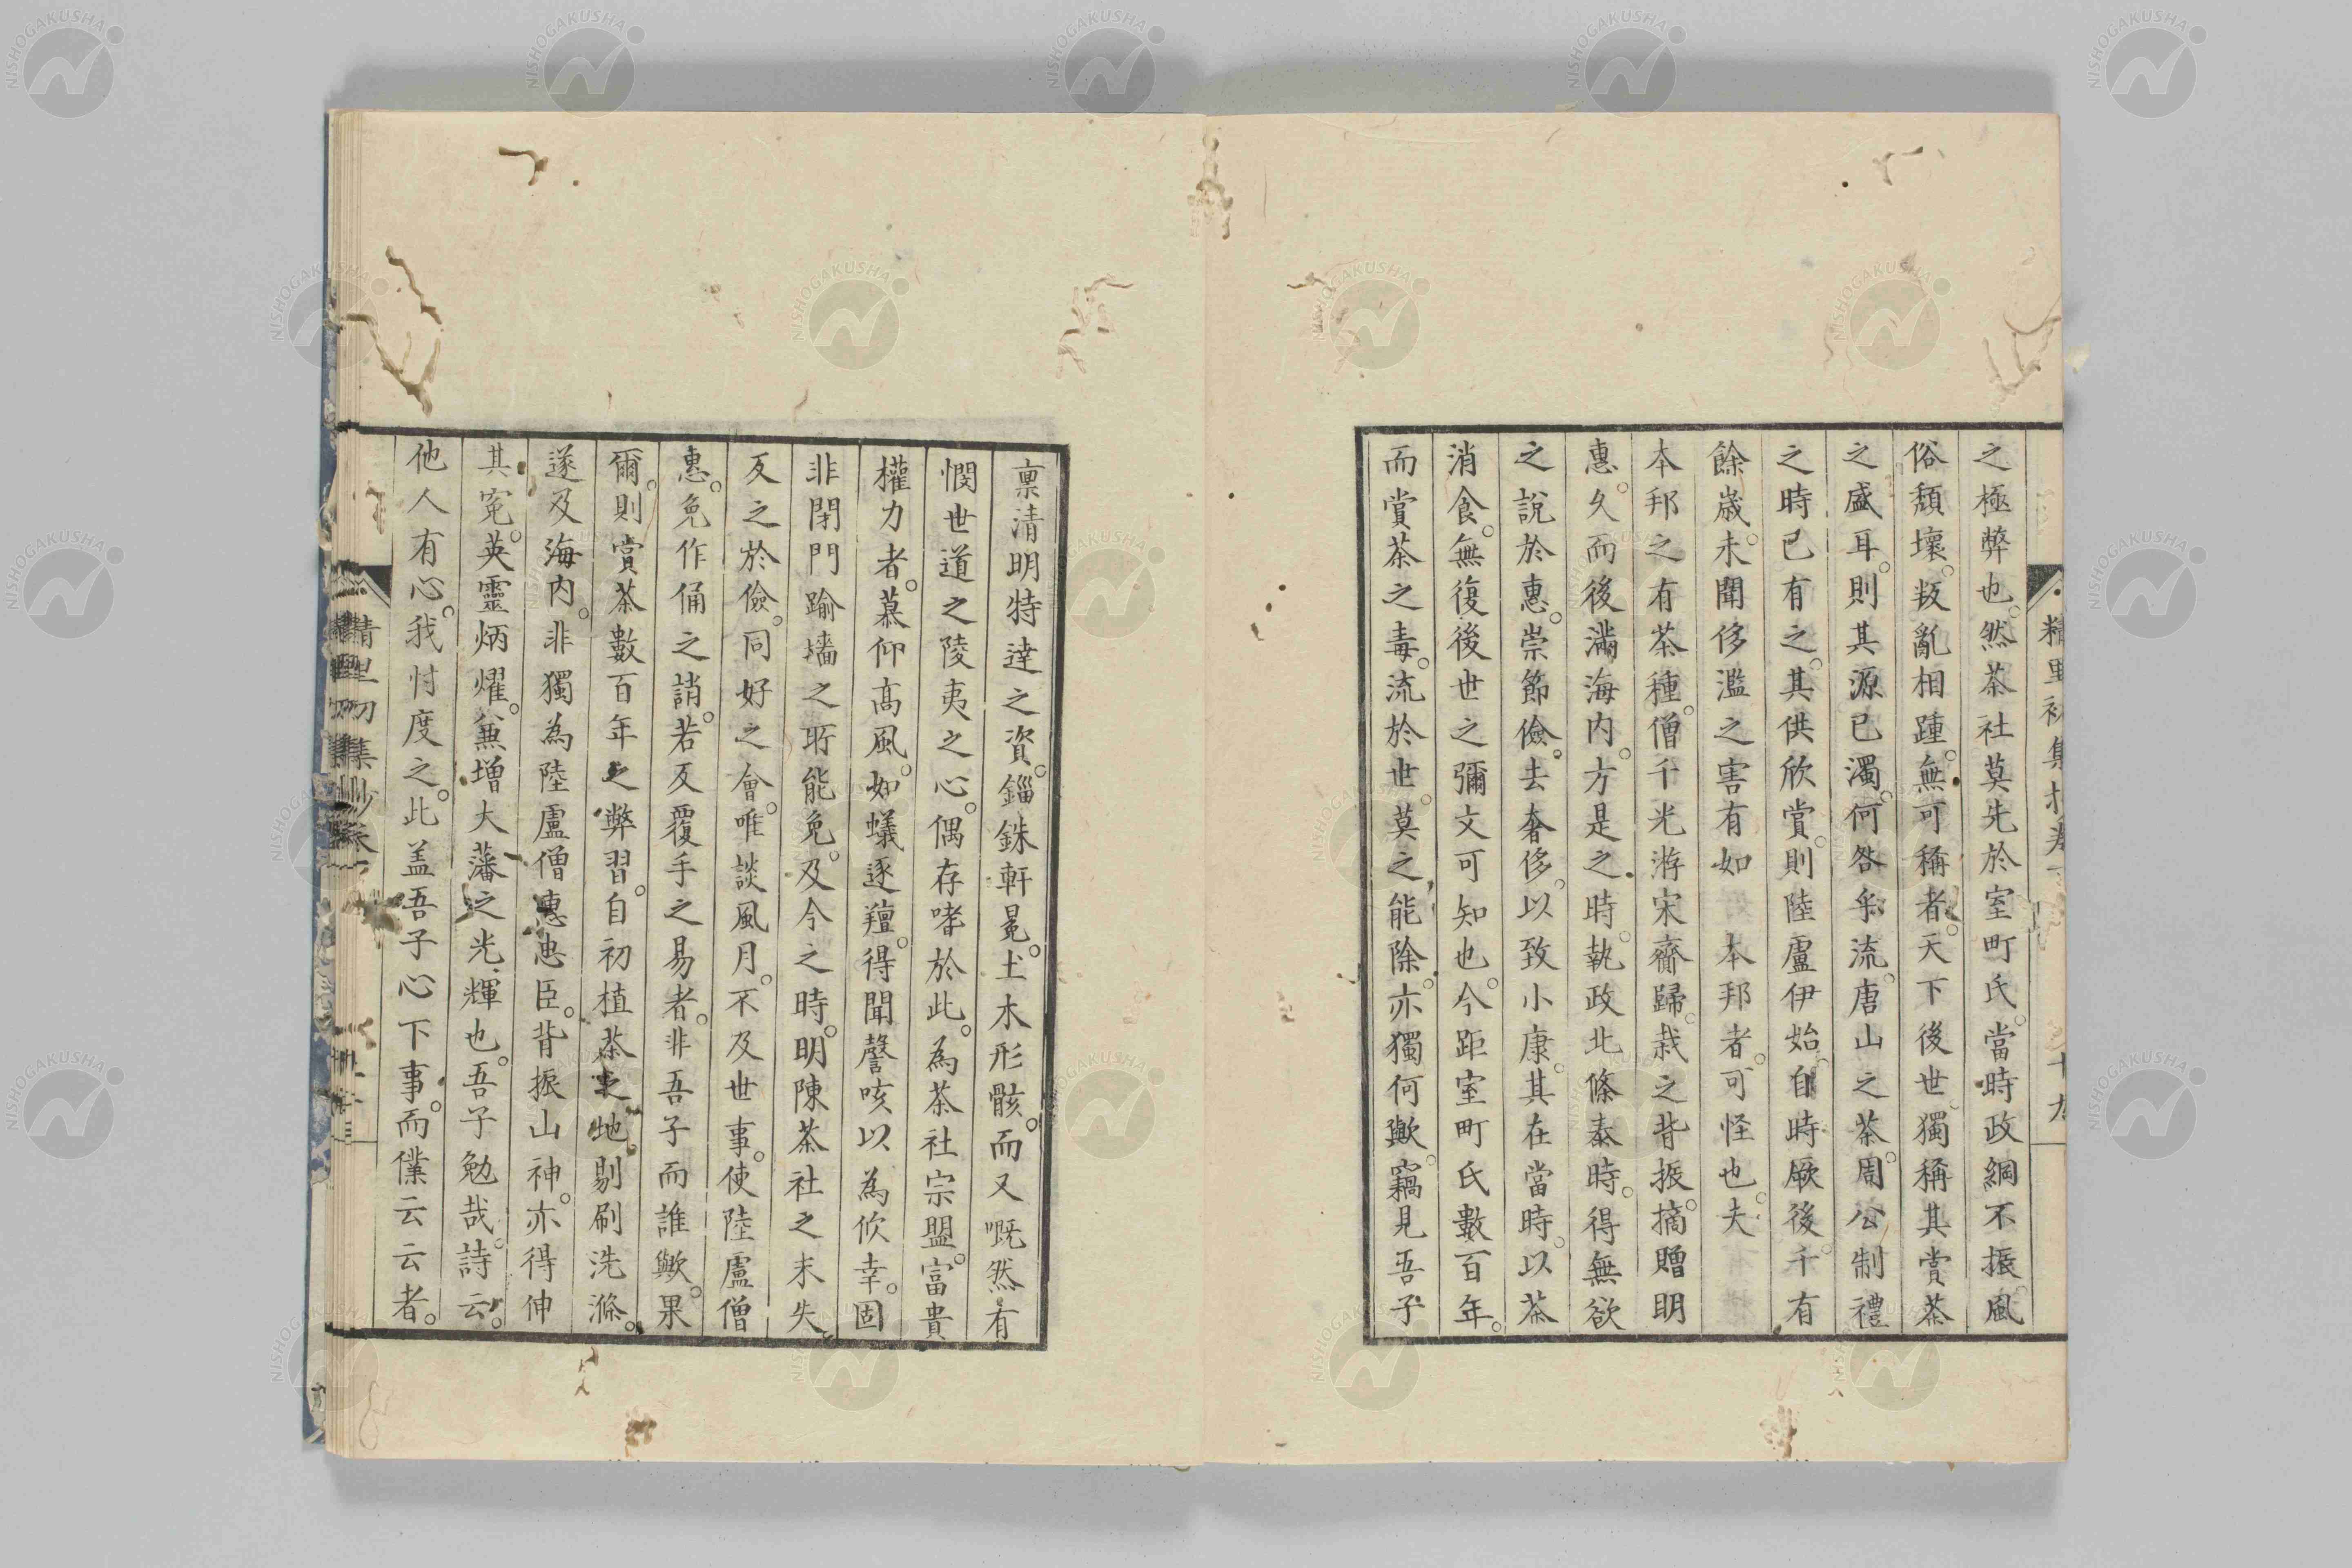 之極弊也。然茶社莫先於室町氏。當時政綱不振。風
俗頽壞。叛亂相踵。無可稱者。天下後世。獨稱其賞茶
之盛耳。則其源已濁。何咎乎流。唐山之茶。周公制禮
之時已有之。其供欣賞。則陸盧伊始。自時厥後。千有
餘歲。未聞侈濫之害有如 本邦者。可怪也。夫
本邦之有茶種。僧千光游宋齎歸。栽之背振。摘贈明
惠。久而後滿海內。方是之時。執政北條泰時。得無欲
之說於惠。崇節儉。去奢侈。以致小康。其在當時。以茶
消食。無復後世之彌文可知也。今距室町氏數百年。
而賞茶之毒。流於世。莫之能除。亦獨何歟。竊見吾子
稟清明特達之資。錙銖軒冕。土木形骸。而又嘅然有
憫世道之陵夷之心。偶存嗜於此。為茶社宗盟。富貴
權力者。慕仰高風。如蟻逐羶。得聞謦咳以為佽幸。固
非閉門踰墻之所能免。及今之時。明陳茶社之末失
反之於儉。同好之會。唯談風月。不及世事。使陸盧僧
惠。免作俑之誚。若反覆手之易者。非吾子而誰歟。果
爾。則賞茶數百年之弊習。自初植茶之地。剔刷洗滌。
遂及海內。非獨為陸盧僧惠忠臣。背振山神。亦得伸
其冤。英靈炳燿。兼增大藩之光輝也。吾子勉哉。詩云。
他人有心。我忖度之。此盖吾子心下事。而僕云云者。